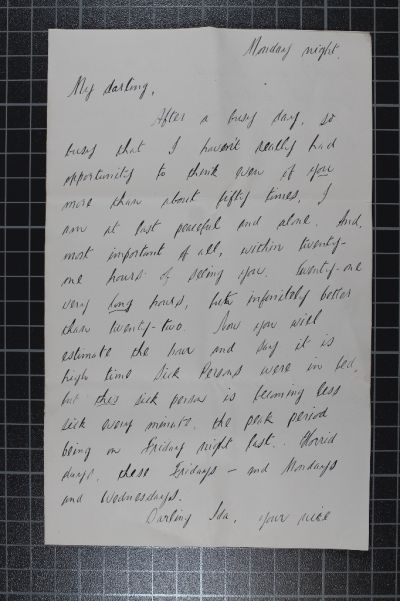 Monday night.
My darling,
After a busy day, so
busy that I haven't really had
opportunity to think even of you
more than about fifty times, I
am at last peaceful and alone. And,
most important of all, within twenty-
one hours of seeing you. Twenty-one
very long hours, but infinitely better
than twenty-two. Now you will
estimate the hour and say it is
high time Sick Persons were in bed,
but this sick person is becoming less
sick every minute, the peak period
being on Friday night last. Horrid
days, these Fridays - and Mondays
and Wednesdays.
Darling Ida, your